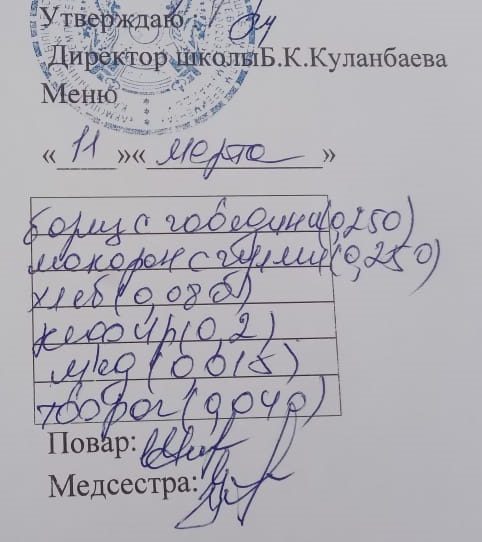 Утверждаю:
Директор школыБ.К.Куланбаева
Меню
«11»«марта»
борщ с говедини(0,250)
мокорон с гулям(0,250)
хлеб(0,080)
кефир(0,2)
мёд(0,015)
творог(0,040)
Повар:
Медсестра: